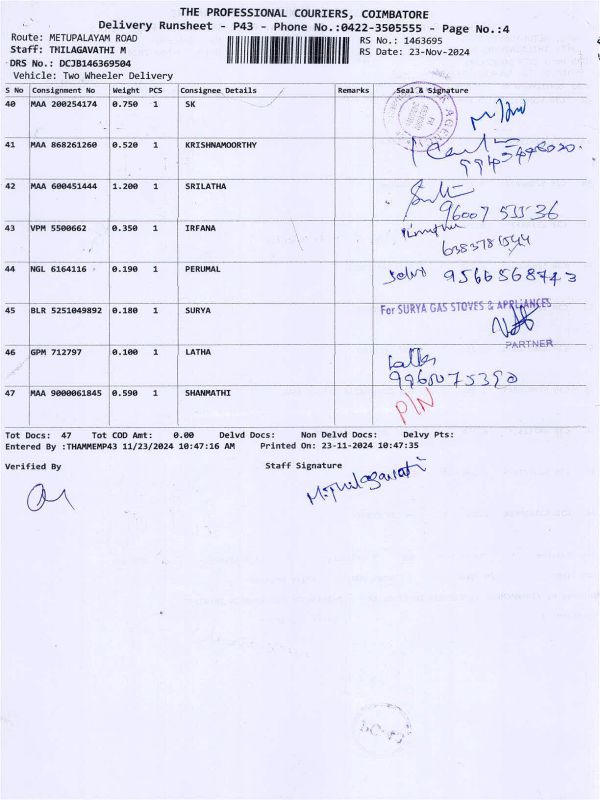 THE PROFESSIONAL COURIERS, COIMBATORE
Delivery Runsheet - P43 - Phone No.:0422-3505555 - Page No.:4
Route: METUPALAYAM ROAD
RS No.: 1463695
Staff: THILAGAVATHI M
RS Date: 23-Nov-2024
DRS No.: DCJB146369504
Vehicle: Two Wheeler Delivery
S No Consignment No Weight PCS Consignee Details Remarks Seal & Signature
40 MAA 200254174 0.750 1 SK
41 MAA 868261260 0.520 1 KRISHNAMOORTHY
42 MAA 600451444 1.200 1 SRILATHA
96007 53536
43 VPM 5500662 0.350 1 IRFANA
44 NGL 6164116 0.190 1 PERUMAL
Selvi 9566568743
45 BLR 5251049892 0.180 1 SURYA
For SURYA GAS STOVES & APPLIANCES
PARTNER
46 GPM 712797 0.100 1 LATHA
Latha
47 MAA 9000061845 0.590 1 SHANMATHI
P/N
Tot Docs: 47 Tot COD Amt: 0.00 Delvd Docs: Non Delvd Docs: Delvy Pts:
Entered By :THAMMEMP43 11/23/2024 10:47:16 AM Printed On: 23-11-2024 10:47:35
Verified By Staff Signature
M.Thilagavati